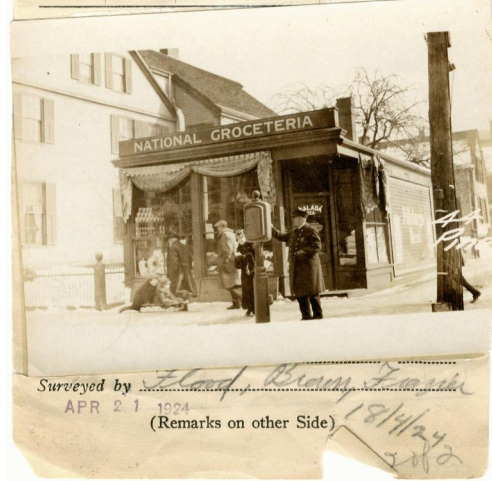 NATIONAL GROCETERIA
SALADA
TEA
Surveyed by Flood, Brown, Frazier
APR 21 1924
(Remarks on other Side)
18/4/24
2 of 2